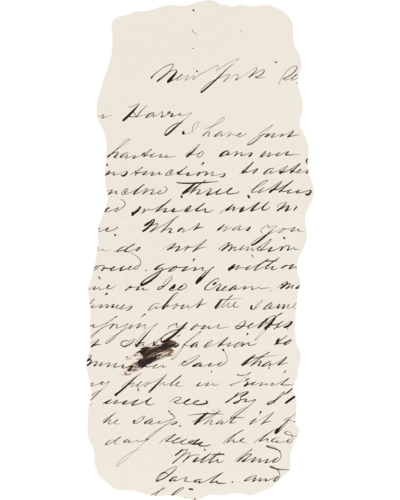 New York
Harry
I have just
hasten to answer
instructions
three letters
which will
What was you
do not mention
going without
on Ice Cream
times about the same
enjoying your selves
satisfaction to
said that
people in French
will see By
he says that it
day he had
With kind
Sarah and